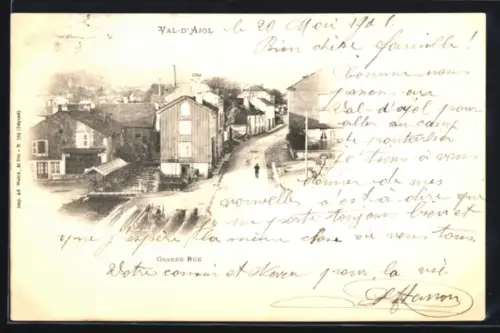 VAL-D'AJOL
le 20 Mai 1901.
Bien chère famille!
Comme nous
passon au
Val-d'ajol pour
aller au camp
de pontarlier
je tiens à vous
donner de mes
nouvelles c'est a dire que
je me porte toujours bien et
que j'espère la même chose de vous tous.
GRANDE RUE
Votre cousin et Neveu pour la vie.
Imp. Ad. Weick, St Dié - N. (Déposé)